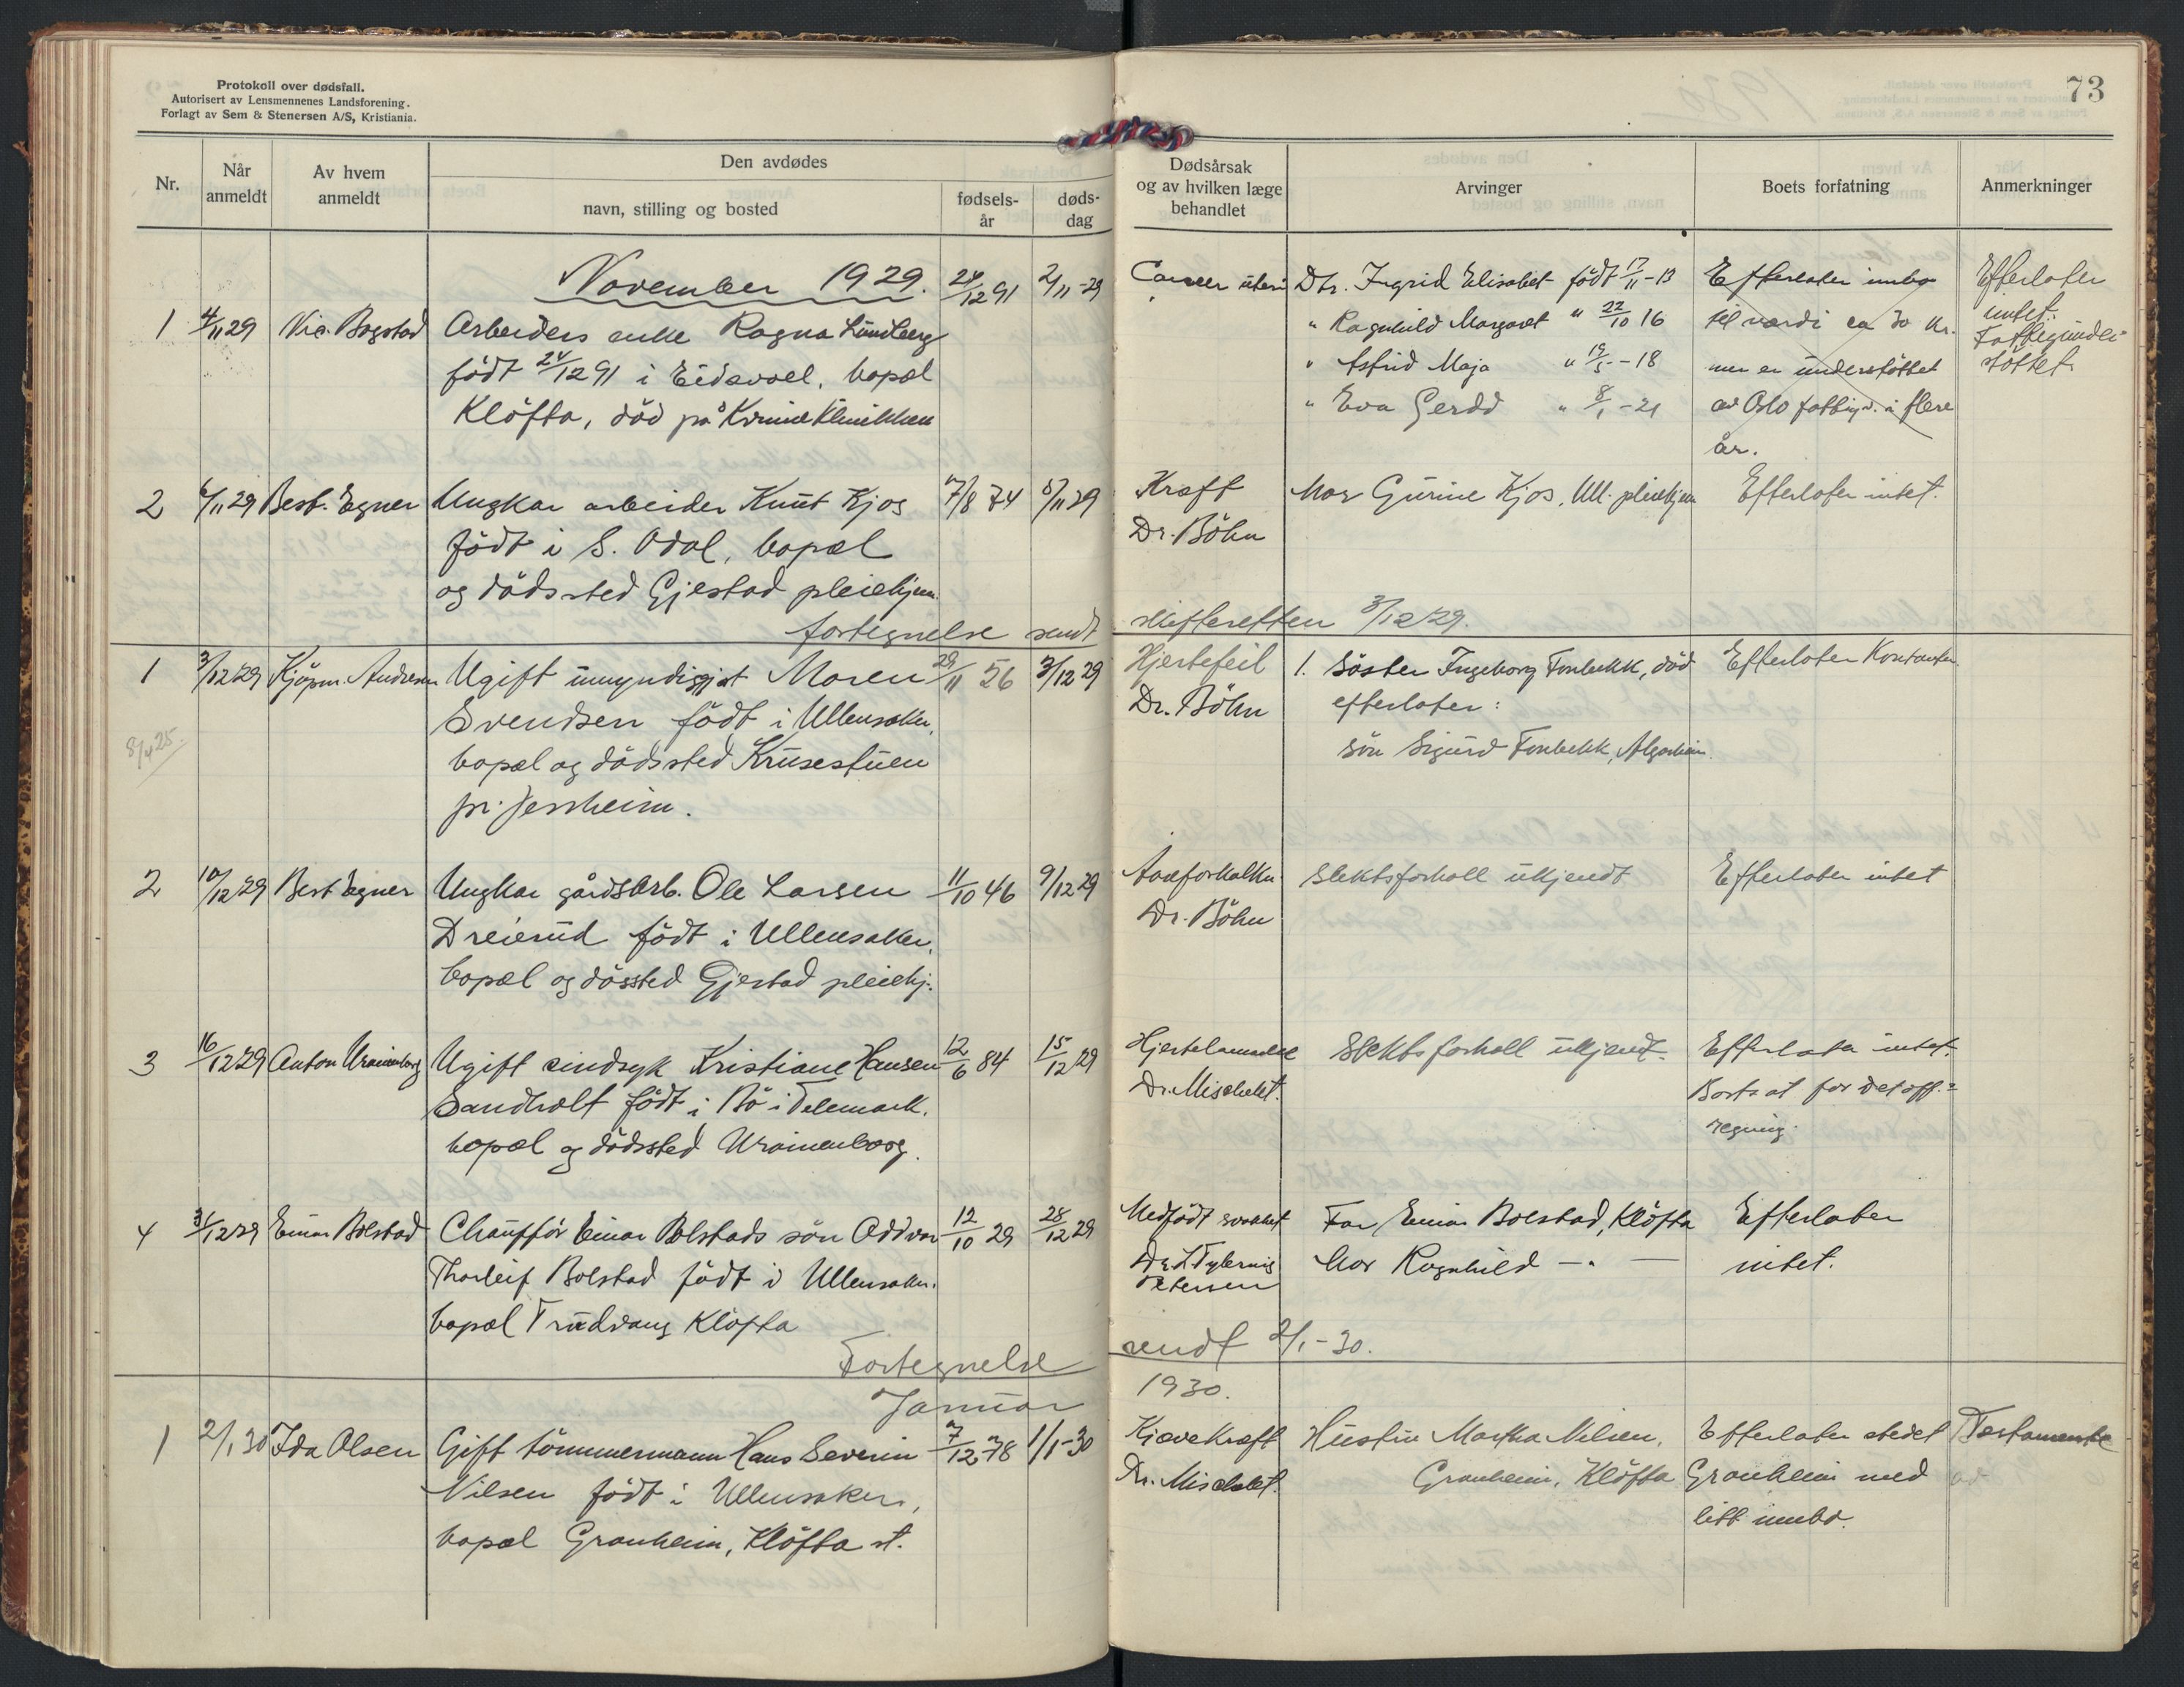 Protokoll over dødsfall.
Autorisert av Lensmennenes Landsforening.
Forlagt av Sem & Stenersen A/S, Kristiania.
73
Nr.
Når anmeldt
Av hvem anmeldt
Den avdødes
navn, stilling og bosted
fødsels-år
døds-dag
Dødsårsak og av hvilken læge behandlet
Arvinger
Boets forfatning
Anmerkninger
November 1929.
1 4/11 29 Vic. Bogstad Arbeiders enke Ragna Lundberg 24/12 91 2/11-29
født 24/12 91 i Eidsvoll, bopæl
Kløfta, død på Kvindeklinikken
Cancer uteri
Dtr. Ingrid Elisabet født 17/11-13
" Ragnhild Margaret " 22/10 16
" Astrid Maja " 19/5-18
" Eva Gerdd " 8/1-21
Efterlater innbo
til værdi ca 30 kr.
men er understøttet
av Oslo fattigv. i flere
år.
Efterlater
intet.
Fattigunder-
støttet.
2 6/11 29 Best. Egner Ungkar arbeider Knut Kjos 7/8 74 5/11 29
født i S. Odal, bopæl
og dødssted Gjestad pleiehjem.
Kræft
Dr. Bøhn
Mor Gurine Kjos, Ull. pleiehjem
Efterlater intet.
fortegnelse sendt skifteretten 3/12 29.
1 3/12 29 Kjøpm. Andresen Ugift umyndiggjort Maren 29/11 56 3/12 29
Svendsen født i Ullensaker,
bopæl og dødssted Krusestuen
pr. Jessheim.
8/4 25.
Hjertefeil
Dr. Bøhn
1. Søster Ingeborg Fonbekk, død
efterlater:
søn Sigurd Fonbekk, Algarheim.
Efterlater Kontanter
2 10/12 29 Best Egner Ungkar gårdsarb. Ole Larsen 11/10 46 9/12 29
Dreierud født i Ullensaker,
bopæl og døssted Gjestad pleiehj.
Aareforkalkn.
Dr. Bøhn
Slektsforhold ukjendt
Efterlater intet
3 16/12 29 Anton Uranienborg Ugift sindsyk Kristiane Hansen 12/6 84 15/12 29
Sandholt født i Bø i Telemark.
bopæl og dødssted Uranienborg.
Hjertelammelse
Dr. Mischelet.
Slektsforhold ukjent.
Efterlater intet.
Bortsat for det off.
regning.
4 31/12 29 Einar Bolstad Chauffør Einar Bolstads søn Oddvar 12/10 29 28/12 29
Thorleif Bolstad født i Ullensaker.
bopæl Trudvang Kløfta
Medfødt svakhet
Petersen
Far Einar Bolstad, Kløfta
Mor Ragnhild — " —
Efterlater
intet.
Fortegnelse sendt 2/1-30.
Januar 1930.
1 2/1 30 Ida Olsen Gift tømmermann Hans Severin 7/12 78 1/1-30
Nilsen født i Ullensaker,
bopæl Granheim, Kløfta st.
Kjævekræft
Dr. Mischelet.
Hustru Martha Nilsen,
Granheim, Kløfta
Efterlater stedet
Granheim med
litt innbo.
Testamente